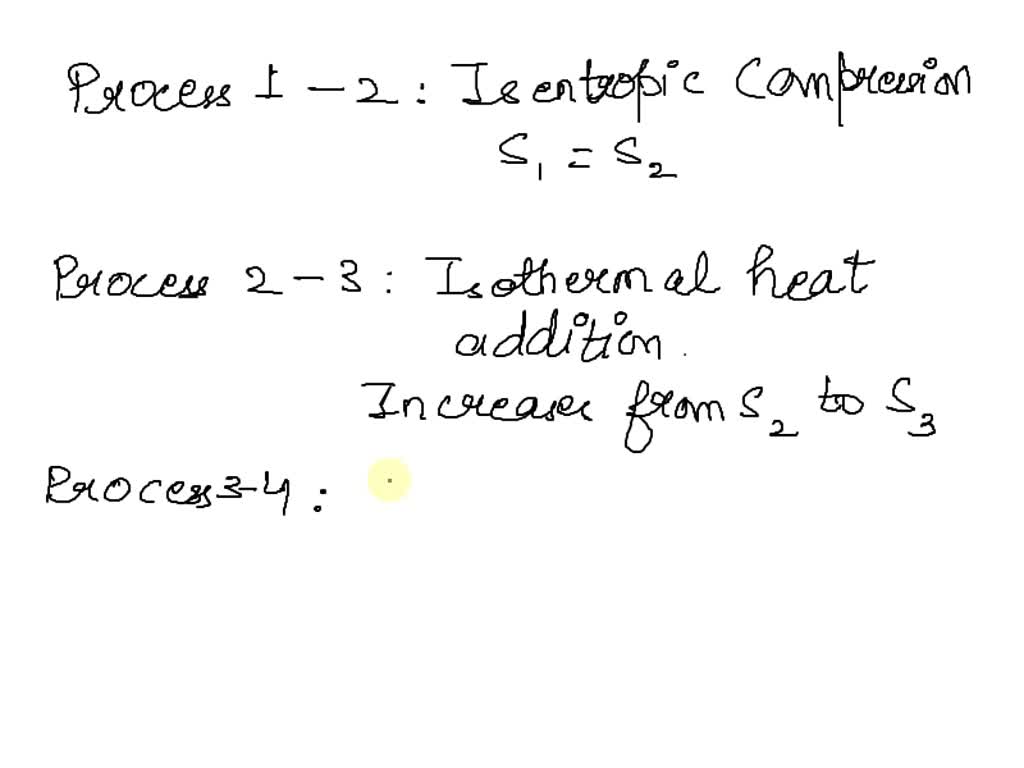 Process 1 - 2 : Isentropic Compression
S₁ = S₂
Process 2 - 3 : Isothermal heat
addition.
Increases from S₂ to S₃
Process 3-4 :